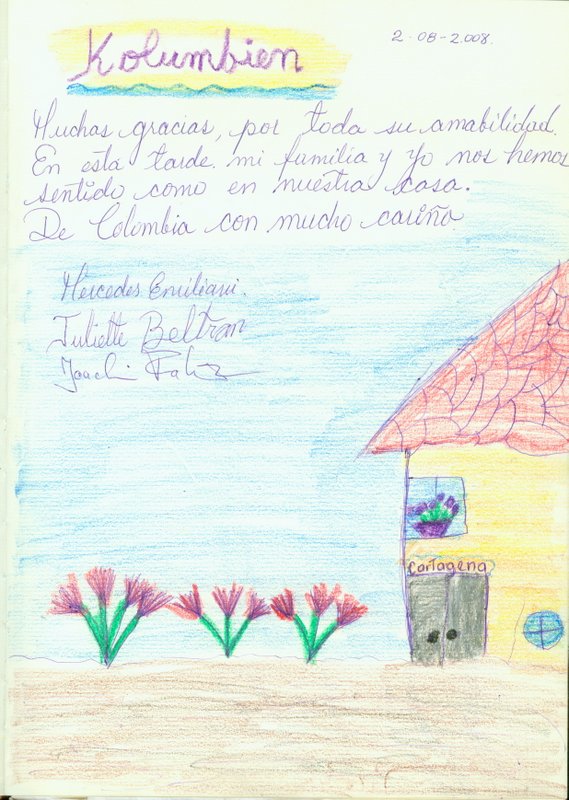 Kolumbien
2-08-2.008.
Muchas gracias, por toda su amabilidad.
En esta tarde mi familia y yo nos hemos
sentido como en nuestra casa.
De Colombia con mucho cariño
Mercedes Emiliani.
Juliette Beltran
Joachi
Cartagena